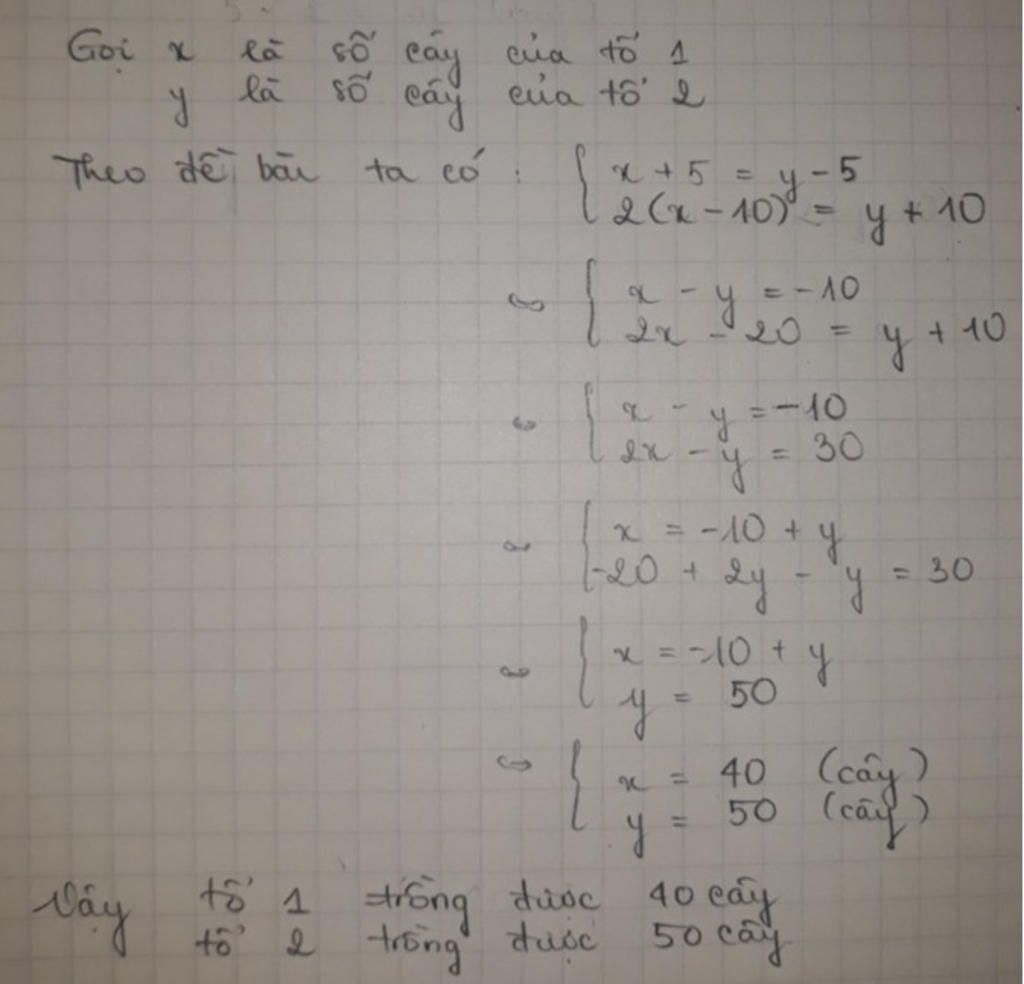 Gọi x là số cây của tổ 1
y là số cây của tổ 2
Theo đề bài ta có : { x + 5 = y - 5
2(x - 10) = y + 10
⇔ { x - y = -10
2x - 20 = y + 10
⇔ { x - y = -10
2x - y = 30
⇔ { x = -10 + y
-20 + 2y - y = 30
⇔ { x = -10 + y
y = 50
⇔ { x = 40 (cây)
y = 50 (cây)
Vậy tổ 1 trồng được 40 cây
tổ 2 trồng được 50 cây